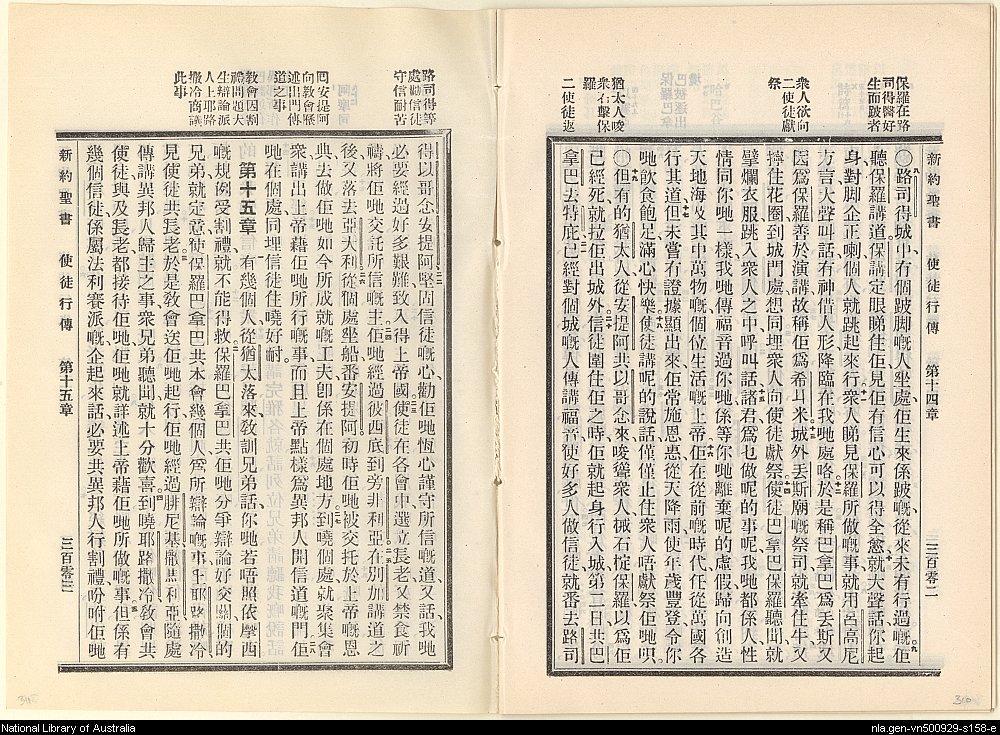 新約聖書　使徒行傳　第十四章　三百零二
保羅在路
司得醫好
生而跛者
衆人欲向
二使徒獻
祭
猶太人唆
衆石擊保
羅
二使徒返
〇路司得城中有個跛脚嘅人坐處佢生來係跛嘅從來未有行過嘅佢
聽保羅講道保講定眼睇住佢見佢有信心可以得全愈就大聲話你起
身對脚企正喇個人就跳起來行衆人睇見保羅所做嘅事就用呂高尼
方言大聲叫話有神借人形降臨在我哋處咯於是稱巴拿巴爲丟斯又
因爲保羅善於演講故稱佢爲希耳米城外丟斯廟嘅祭司就牽住牛又
擰住花圈到城門處想同埋衆人向使徒獻祭使徒巴拿巴保羅聽聞就
擘爛衣服跳入衆人之中呼叫話諸君爲乜做呢的事呢我哋都係人性
情同你哋一樣我哋傳福音過你哋係等你哋離棄呢的虛假歸向創造
天地海及其中萬物嘅個位生活嘅上帝佢在從前嘅時代任從萬國各
行其道但未嘗冇證據顯出來佢常施恩惠從天降雨使年歲豐登令你
哋飮食飽足滿心快樂使徒講呢的說話僅僅止住衆人唔獻祭佢哋呮
〇但有的猶太人從安提阿共以哥念來唆聳衆人揼石掟保羅以爲佢
已經死就拉佢出城外信徒圍住佢之時佢就起身行入城第二日共巴
拿巴去特庇已經對個城嘅人傳講福音使好多人做信徒就番去路司
路司得等
處勸信徒
守信耐苦
囘安提阿
向教會歷
述出門傳
道之事
教會因割
禮問題大
生辯論派
人上耶路
撒冷商議
此事
得以哥念安提阿堅固信徒嘅心勸佢哋恆心謹守所信嘅道又話我哋
必要經過好多艱難致入得上帝國使徒在各會中選立長老又禁食祈
禱將佢哋交託所信嘅主佢哋經過彼西底到旁非利亞在別加講道之
後又落去亞大利從個處坐船番安提阿初時佢哋被交托於上帝嘅恩
典去做佢哋如今所成就嘅工夫卽係在個處地方到嘵個處就聚集會
衆講出上帝藉佢哋所行嘅事而且上帝點樣爲異邦人開信道嘅門佢
哋在個處同埋信徒住嘵好耐
第十五章　有幾個人從猶太落來教訓兄弟話你哋若唔照依摩西
嘅規例受割禮就不能得救保羅巴拿巴共佢哋分爭辯論好交關個的
兄弟就定意使保羅巴拿巴共本會幾個人爲所辯論嘅事上耶路撒冷
見使徒共長老於是教會送佢哋起行佢哋經過腓尼基撒馬利亞隨處
傳講異邦人歸主之事衆兄弟聽聞就十分歡喜到嘵耶路撒冷教會共
使徒與及長老都接待佢哋佢哋就詳述上帝藉佢哋所做嘅事但係有
幾個信徒係屬法利賽派嘅企起來話必要共異邦人行割禮吩咐佢哋
新約聖書　使徒行傳　第十五章　三百零三
National Library of Australia
nla.gen-vn500929-s158-e